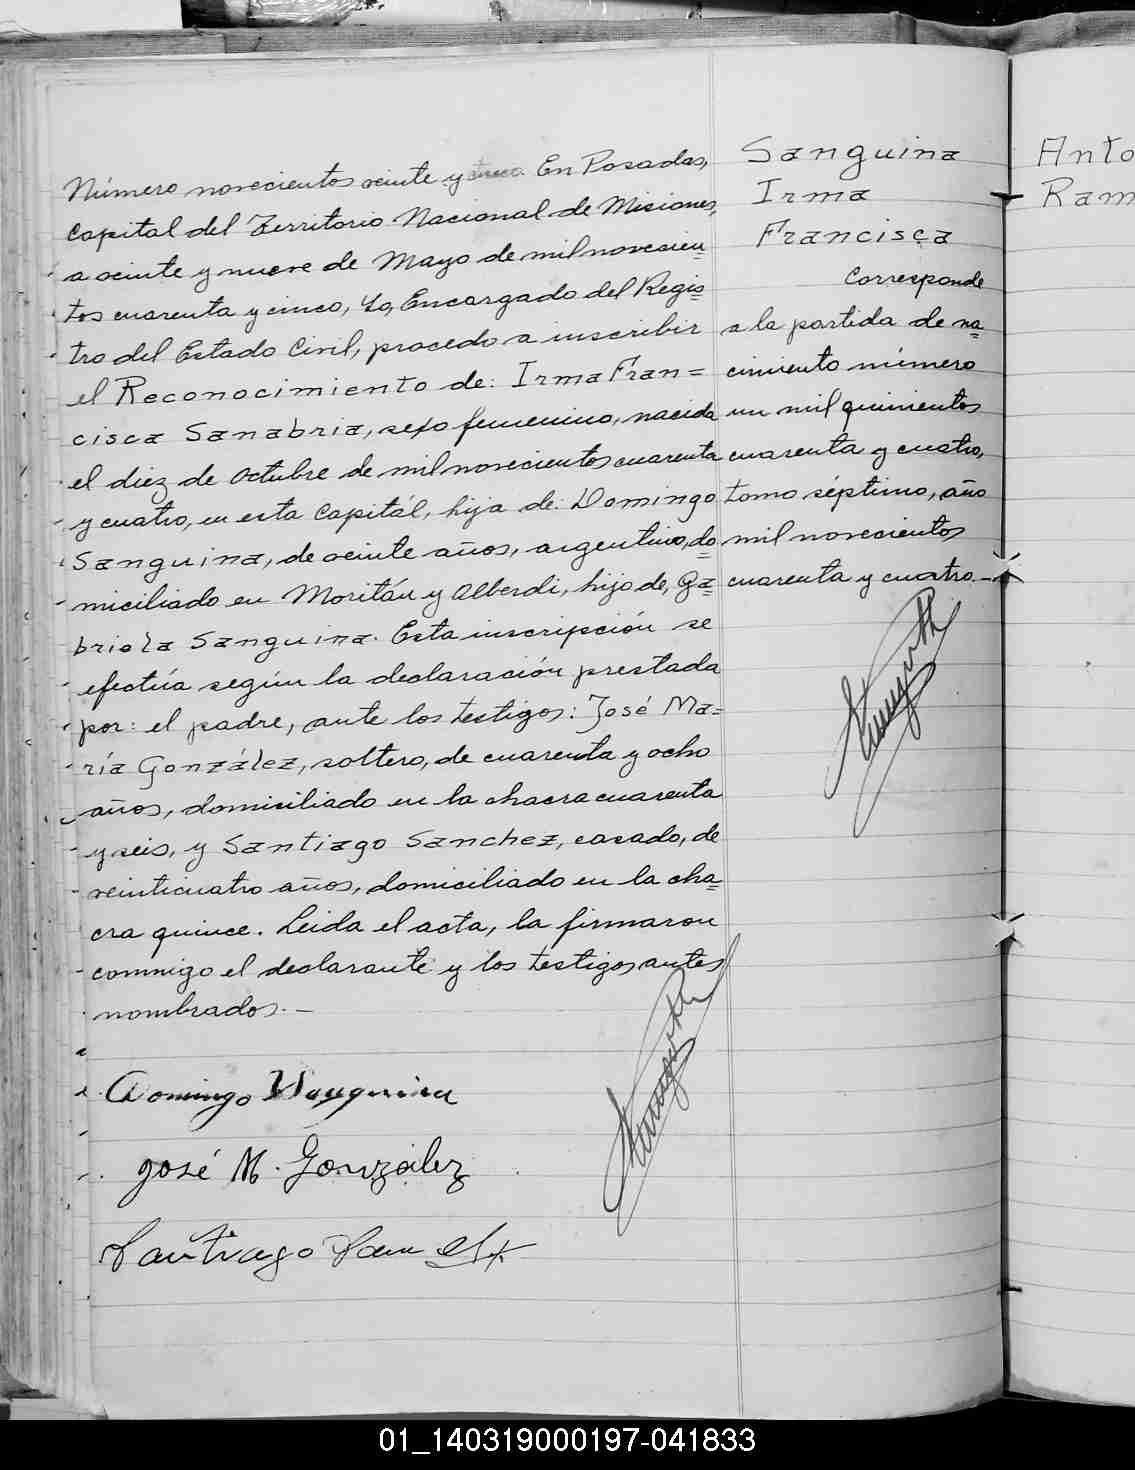 Número novecientos veinte y cinco. En Posadas,
Capital del Territorio Nacional de Misiones,
a veinte y nueve de Mayo de mil novecien=
tos cuarenta y cinco, Yo, Encargado del Regis=
tro del Estado Civil, procedo a inscribir
el Reconocimiento de: Irma Fran=
cisca Sanabria, sexo femenino, nacida
el diez de Octubre de mil novecientos cuarenta
y cuatro, en esta Capitál, hija de: Domingo
Sanguina, de veinte años, argentino, do=
miciliado en Moritán y Alberdi, hijo de, Ga=
briela Sanguina. Esta inscripción se
efectúa según la declaración prestada
por: el padre, ante los testigos: José Ma=
ría González, soltero, de cuarenta y ocho
años, domiciliado en la chacra cuarenta
y seis, y Santiago Sanchez, casado, de
veinticuatro años, domiciliado en la cha=
cra quince. Leida el acta, la firmaron
conmigo el declarante y los testigos antes
nombrados.—
Domingo Sanguina
José M. González
Santiago
Sanguina
Irma
Francisca
Corresponde
a la partida de na=
cimiento número
un mil quinientos
cuarenta y cuatro,
tomo séptimo, año
mil novecientos
cuarenta y cuatro.—
Anto
Ram
01_140319000197-041833